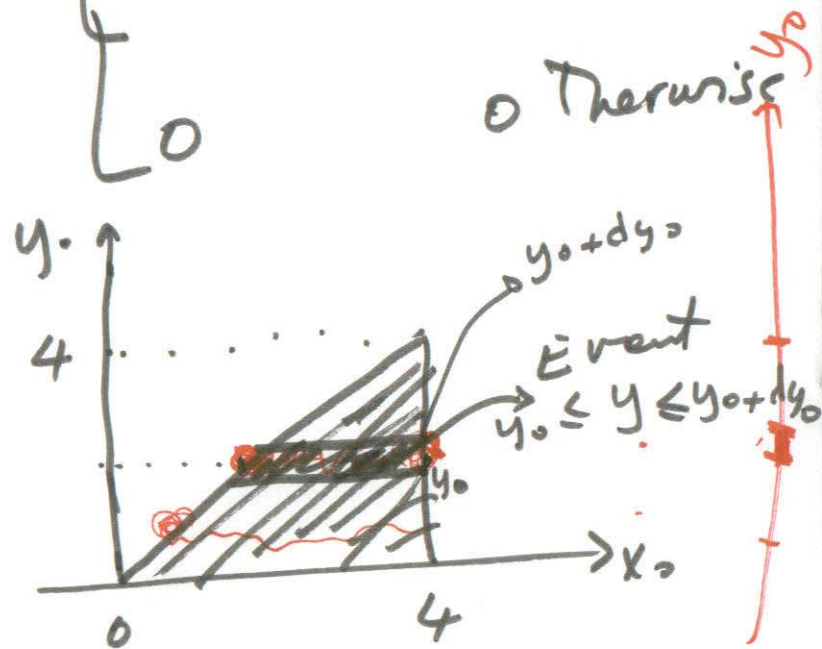 0 0 Therwise
y₀
y₀
y₀+dy₀
4
Event
y₀ ≤ y ≤ y₀+dy₀
y₀
x₀
0 4